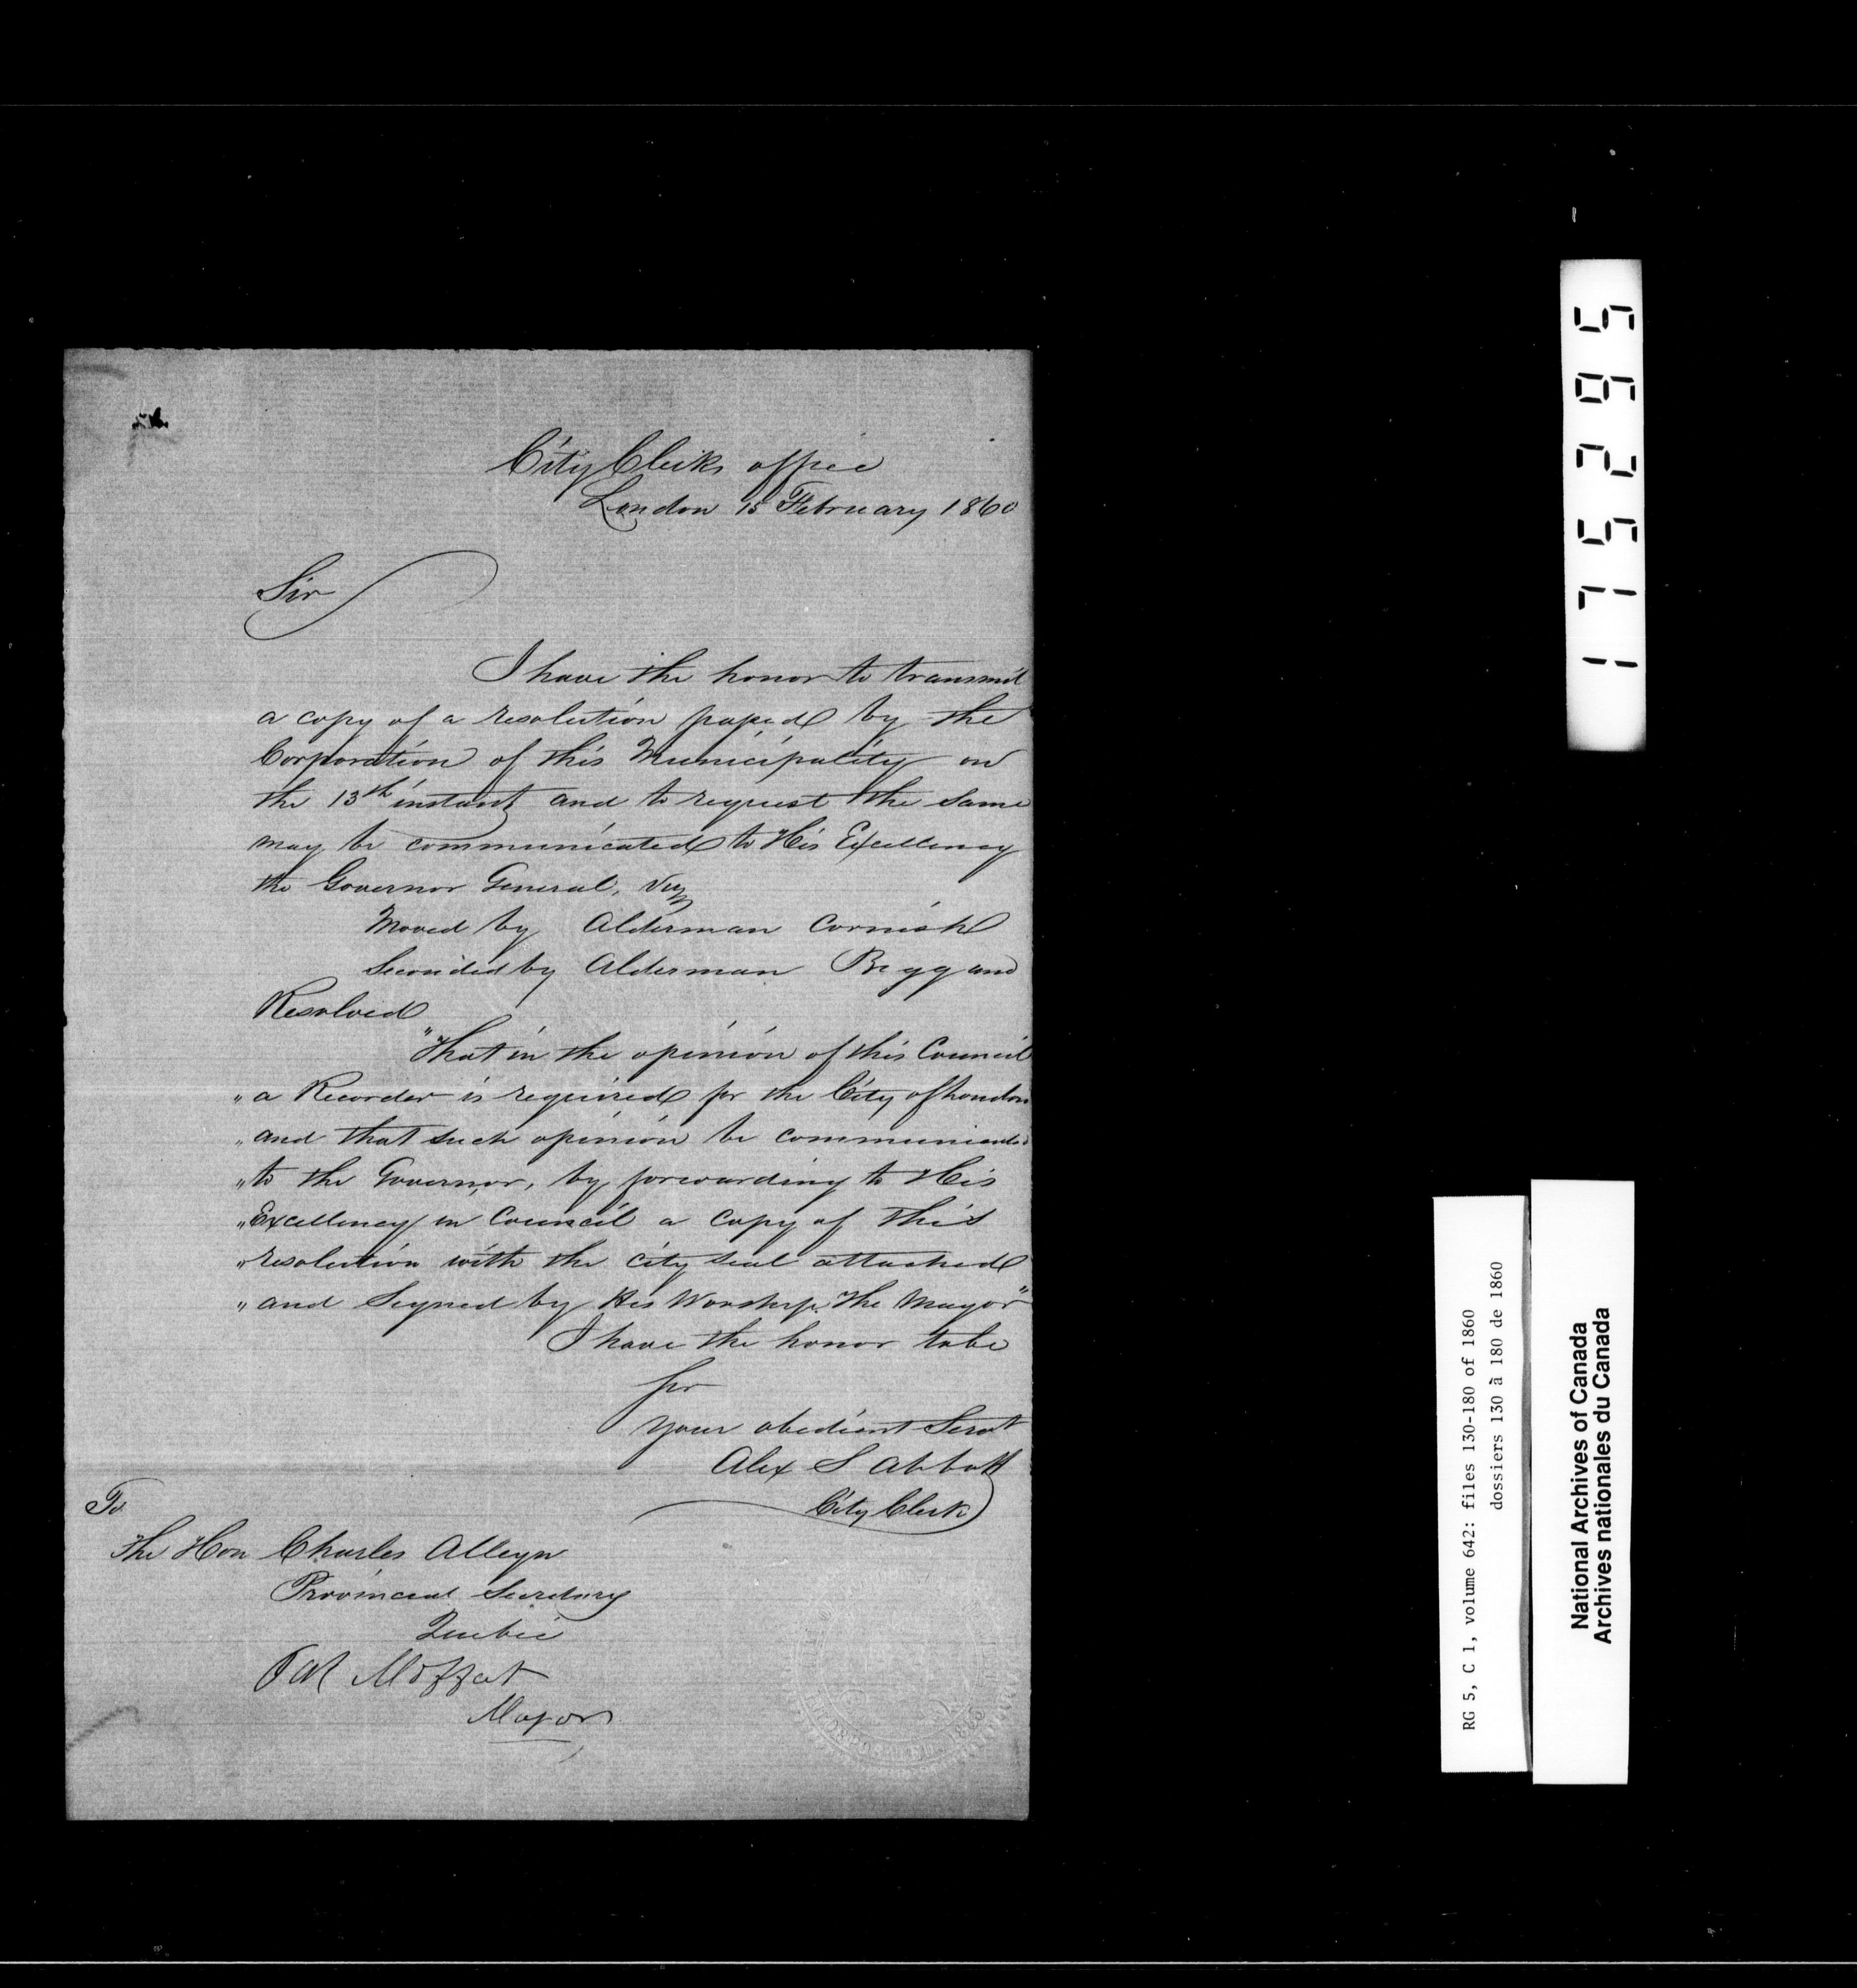 City Clerks office
London 15 February 1860
Sir
I have the honor to transmit
a copy of a resolution passed by the
Corporation of this Municipality on
the 13th instant and to request the same
may be communicated to His Excellency
the Governor General, viz
Moved by Alderman Cornish
Seconded by Alderman Begg and
Resolved
"That in the opinion of this Council
"a Recorder is required for the City of London
"and that such opinion be communicated
"to the Governor, by forwarding to His
"Excellency in Council a copy of this
"resolution with the city seal attached
"and Signed by His Worship The Mayor"
I have the honor to be
Sir
your obedient Servt
Alex S Abbott
City Clerk
To
The Hon Charles Alleyn
Provincial Secretary
Quebec
Moffat
Mayor
175295
RG 5, C 1, volume 642: files 130-180 of 1860
dossiers 130 à 180 de 1860
National Archives of Canada
Archives nationales du Canada